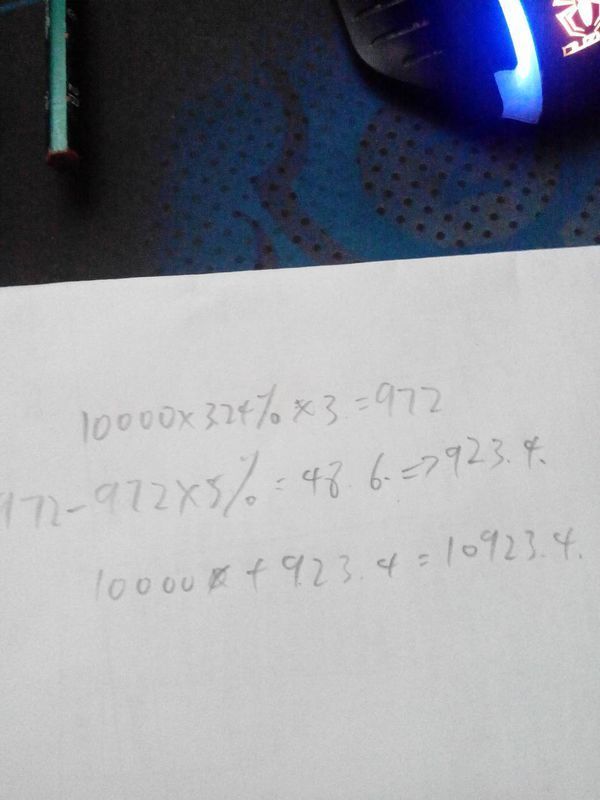 10000×324%×3=972
972-972×5%=48.6.=>923.4.
10000+923.4=10923.4.